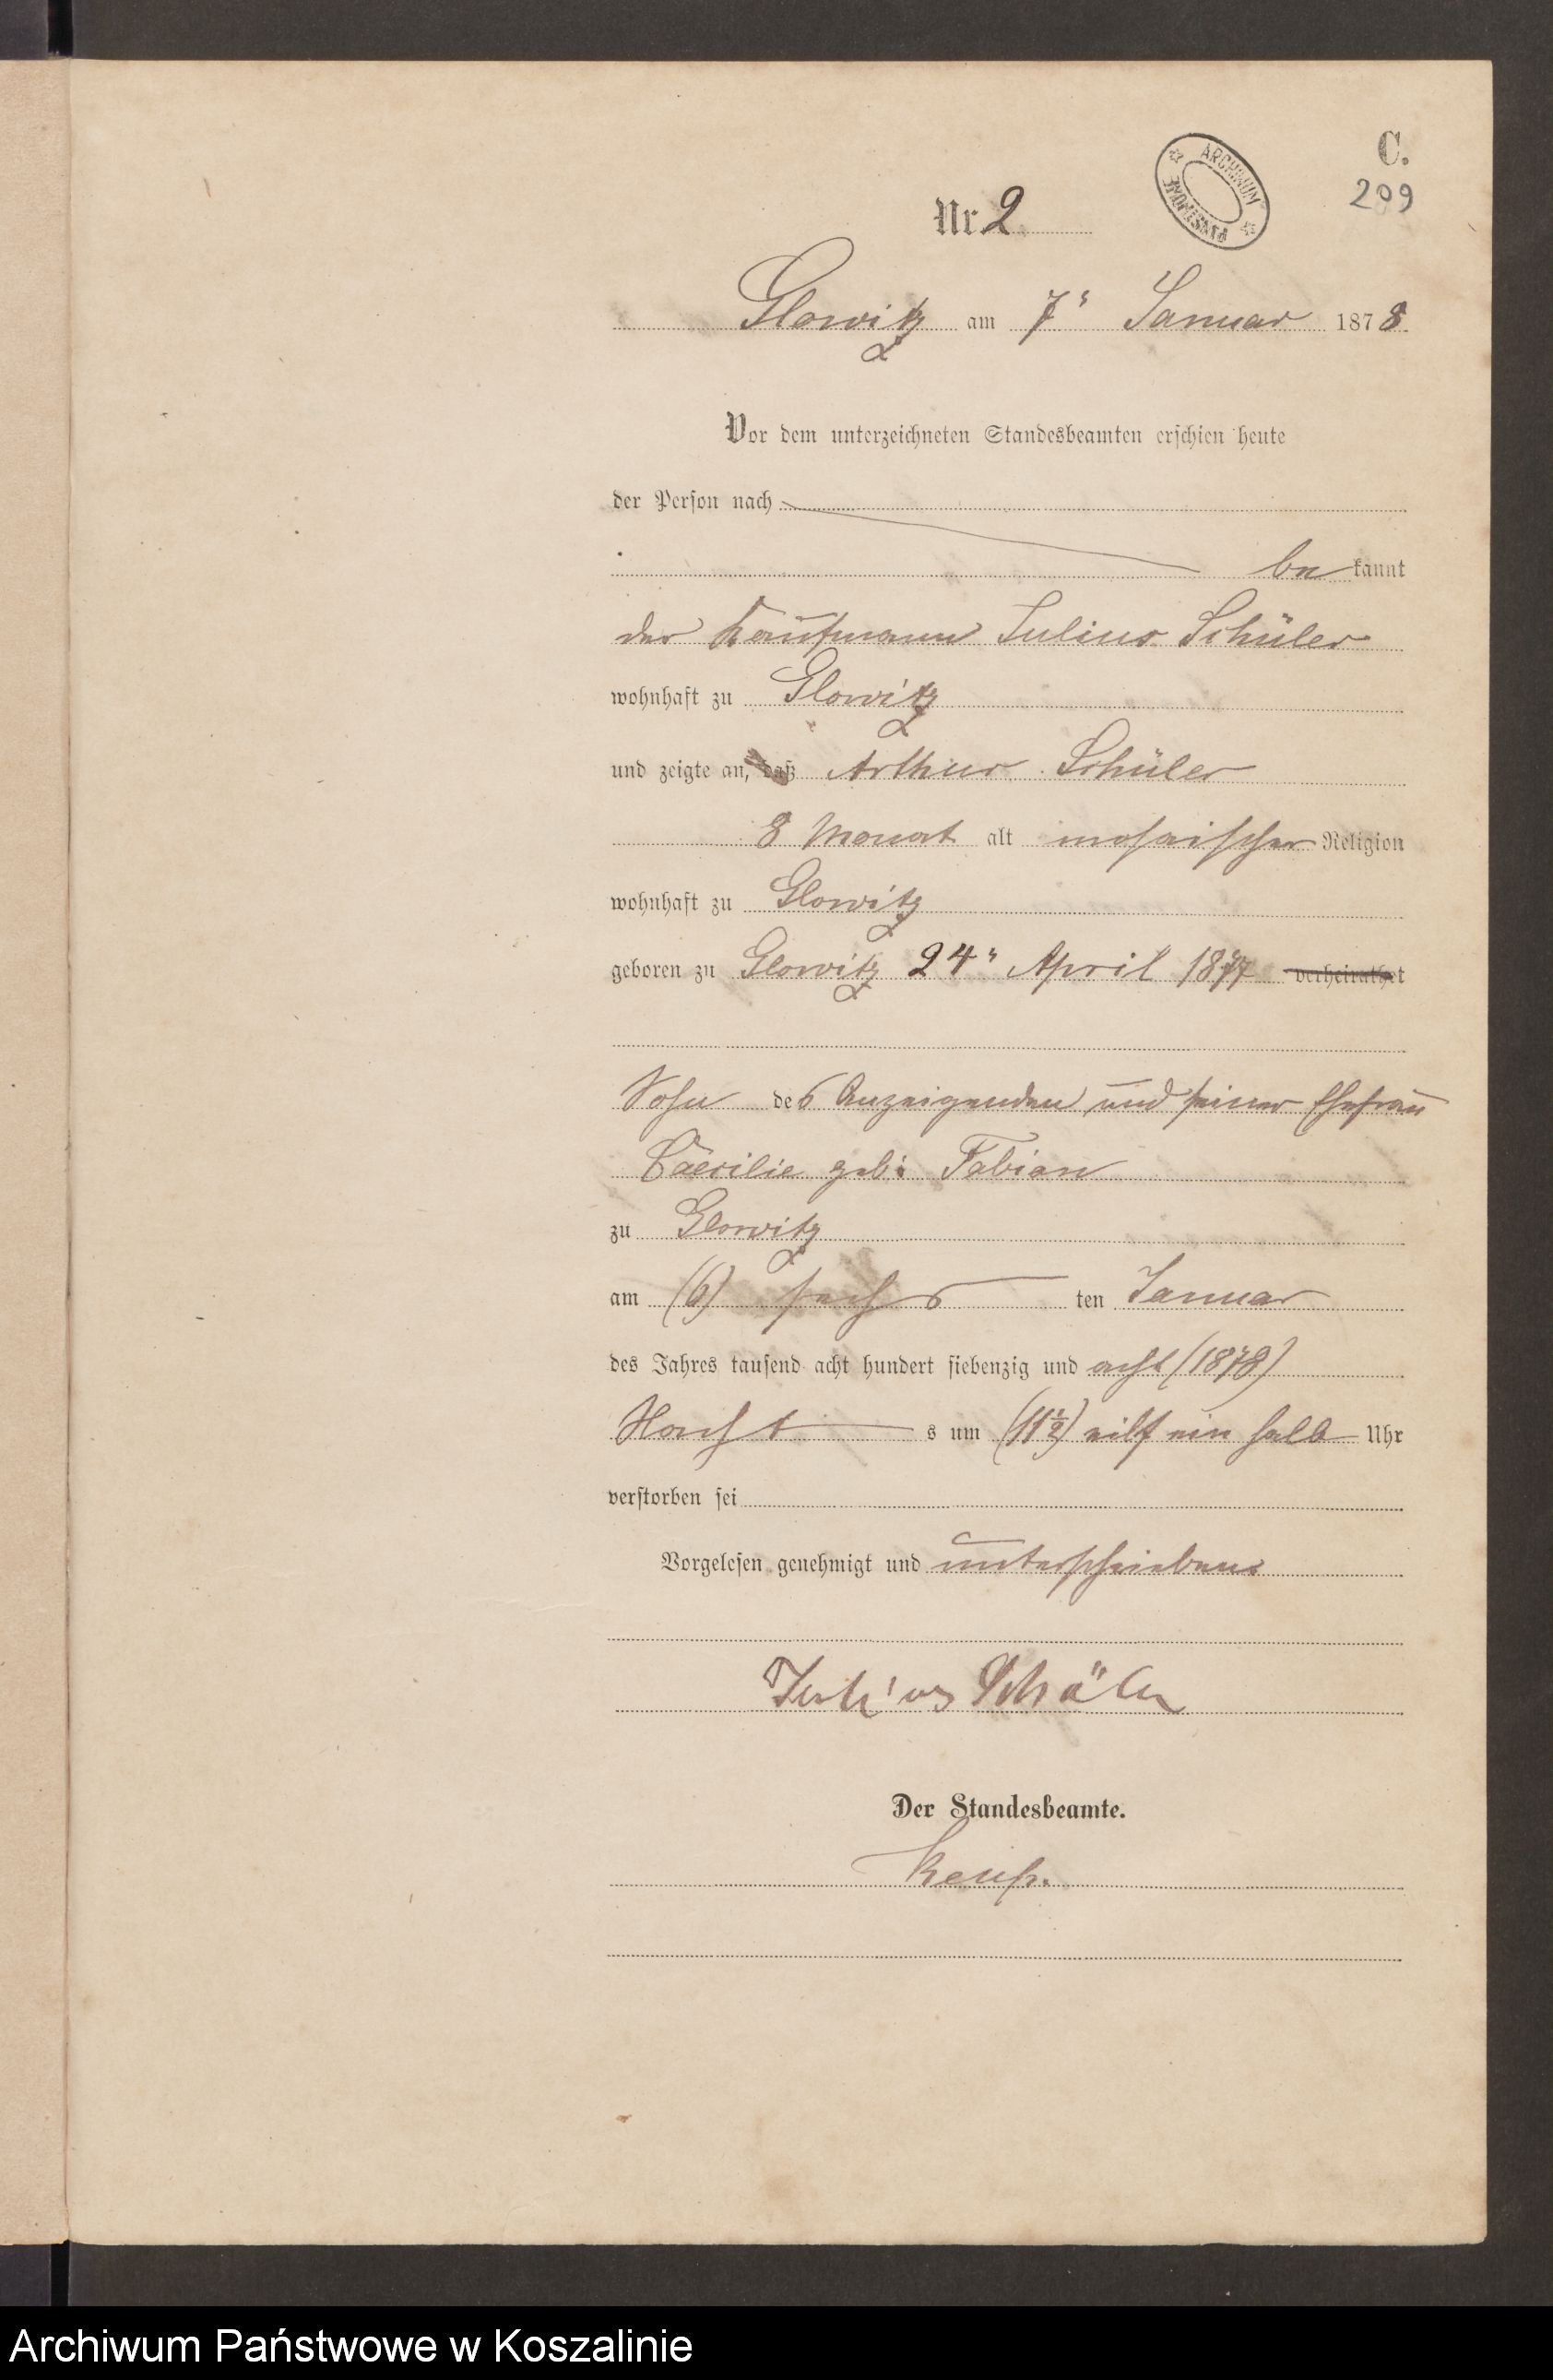 C.
209
ARCHIWUM PAŃSTWOWE
Nr. 2
Glowitz am 7" Januar 1878
Vor dem unterzeichneten Standesbeamten erschien heute
der Person nach
be kannt
der Kaufmann Julius Schüler
wohnhaft zu Glowitz
und zeigte an, daß Arthur Schüler
8 Monat alt mosaischer Religion
wohnhaft zu Glowitz
geboren zu Glowitz 24" April 1877 verheirathet
Sohn des Anzeigenden und seiner Ehefrau
Cäecilie geb: Fabian
zu Glowitz
am (6) sechs ten Januar
des Jahres tausend acht hundert siebenzig und acht (1878)
Nachts um (11½) eilf ein halb Uhr
verstorben sei
Vorgelesen genehmigt und unterschrieben
Julius Schüler
Der Standesbeamte.
Archiwum Państwowe w Koszalinie